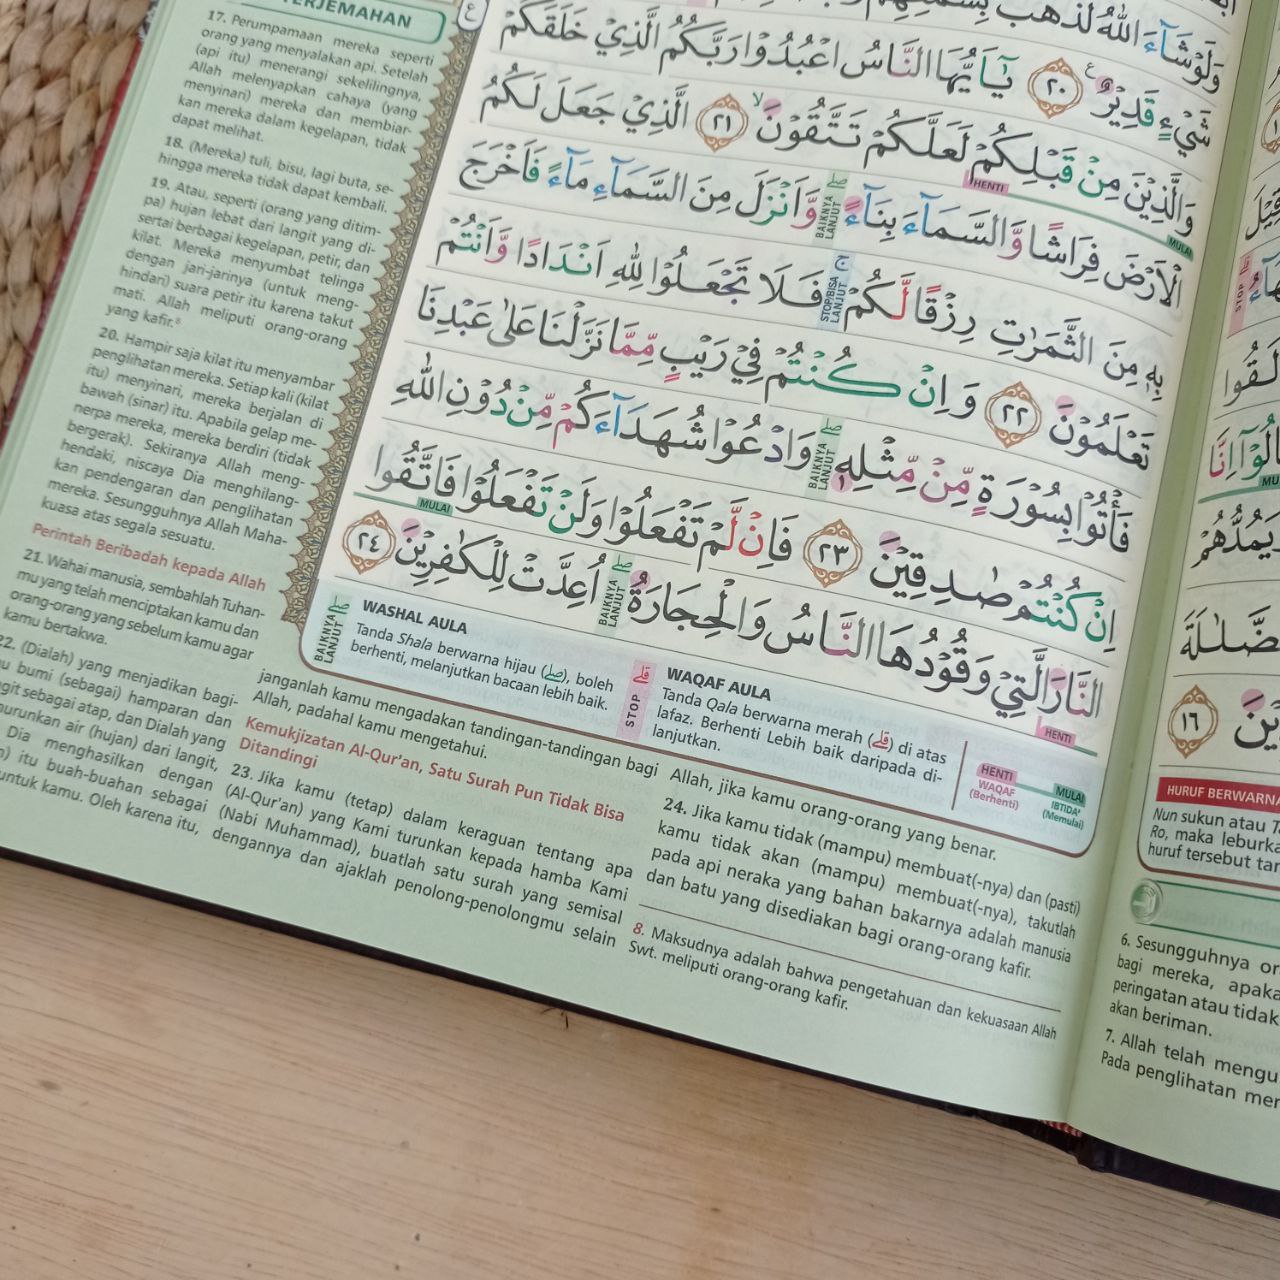 TERJEMAHAN
17. Perumpamaan mereka seperti
orang yang menyalakan api. Setelah
(api itu) menerangi sekelilingnya,
Allah melenyapkan cahaya (yang
menyinari) mereka dan membiar-
kan mereka dalam kegelapan, tidak
dapat melihat.
18. (Mereka) tuli, bisu, lagi buta, se-
hingga mereka tidak dapat kembali.
19. Atau, seperti (orang yang ditim-
pa) hujan lebat dari langit yang di-
sertai berbagai kegelapan, petir, dan
kilat. Mereka menyumbat telinga
dengan jari-jarinya (untuk meng-
hindari) suara petir itu karena takut
mati. Allah meliputi orang-orang
yang kafir.8
20. Hampir saja kilat itu menyambar
penglihatan mereka. Setiap kali (kilat
itu) menyinari, mereka berjalan di
bawah (sinar) itu. Apabila gelap me-
nerpa mereka, mereka berdiri (tidak
bergerak). Sekiranya Allah meng-
hendaki, niscaya Dia menghilang-
kan pendengaran dan penglihatan
mereka. Sesungguhnya Allah Maha-
kuasa atas segala sesuatu.
Perintah Beribadah kepada Allah
21. Wahai manusia, sembahlah Tuhan-
mu yang telah menciptakan kamu dan
orang-orang yang sebelum kamu agar
kamu bertakwa.
22. (Dialah) yang menjadikan bagi-
bumi (sebagai) hamparan dan
sebagai atap, dan Dialah yang
air (hujan) dari langit,
Dia menghasilkan dengan
itu buah-buahan sebagai
untuk kamu. Oleh karena itu,
وَلَوْ شَاۤءَ اللّٰهُ لَذَهَبَ بِسَمْعِهِمْ
شَيْءٍ قَدِيْرٌ ٢٠ يٰٓاَيُّهَا النَّاسُ اعْبُدُوْا رَبَّكُمُ الَّذِيْ خَلَقَكُمْ
وَالَّذِيْنَ مِنْ قَبْلِكُمْ لَعَلَّكُمْ تَتَّقُوْنَ ٢١ الَّذِيْ جَعَلَ لَكُمُ
الْاَرْضَ فِرَاشًا وَّالسَّمَاۤءَ بِنَاۤءً وَّاَنْزَلَ مِنَ السَّمَاۤءِ مَاۤءً فَاَخْرَجَ
بِهٖ مِنَ الثَّمَرٰتِ رِزْقًا لَّكُمْ فَلَا تَجْعَلُوْا لِلّٰهِ اَنْدَادًا وَّاَنْتُمْ
تَعْلَمُوْنَ ٢٢ وَاِنْ كُنْتُمْ فِيْ رَيْبٍ مِّمَّا نَزَّلْنَا عَلٰى عَبْدِنَا
فَأْتُوْا بِسُوْرَةٍ مِّنْ مِّثْلِهٖ وَادْعُوْا شُهَدَاۤءَكُمْ مِّنْ دُوْنِ اللّٰهِ
اِنْ كُنْتُمْ صٰدِقِيْنَ ٢٣ فَاِنْ لَّمْ تَفْعَلُوْا وَلَنْ تَفْعَلُوْا فَاتَّقُوا
النَّارَ الَّتِيْ وَقُوْدُهَا النَّاسُ وَالْحِجَارَةُ اُعِدَّتْ لِلْكٰفِرِيْنَ ٢٤
HENTI
MULAI
BAIKNYA LANJUT
STOP/BISA LANJUT
BAIKNYA LANJUT
MULAI
BAIKNYA LANJUT
HENTI
BAIKNYA LANJUT
WASHAL AULA
Tanda Shala berwarna hijau (صلى), boleh
berhenti, melanjutkan bacaan lebih baik.
STOP
WAQAF AULA
Tanda Qala berwarna merah (قلى) di atas
lafaz. Berhenti Lebih baik daripada di-
lanjutkan.
HENTI
WAQAF
(Berhenti)
MULAI
IBTIDA'
(Memulai)
janganlah kamu mengadakan tandingan-tandingan bagi
Allah, padahal kamu mengetahui.
Kemukjizatan Al-Qur'an, Satu Surah Pun Tidak Bisa
Ditandingi
23. Jika kamu (tetap) dalam keraguan tentang apa
(Al-Qur'an) yang Kami turunkan kepada hamba Kami
(Nabi Muhammad), buatlah satu surah yang semisal
dengannya dan ajaklah penolong-penolongmu selain
Allah, jika kamu orang-orang yang benar.
24. Jika kamu tidak (mampu) membuat(-nya) dan (pasti)
kamu tidak akan (mampu) membuat(-nya), takutlah
pada api neraka yang bahan bakarnya adalah manusia
dan batu yang disediakan bagi orang-orang kafir.
8. Maksudnya adalah bahwa pengetahuan dan kekuasaan Allah
Swt. meliputi orang-orang kafir.
STOP
١٦
HURUF BERWARNA
Nun sukun atau
Ro, maka leburka
huruf tersebut
6. Sesungguhnya
bagi mereka,
peringatan atau tidak
akan beriman.
7. Allah telah
Pada penglihatan